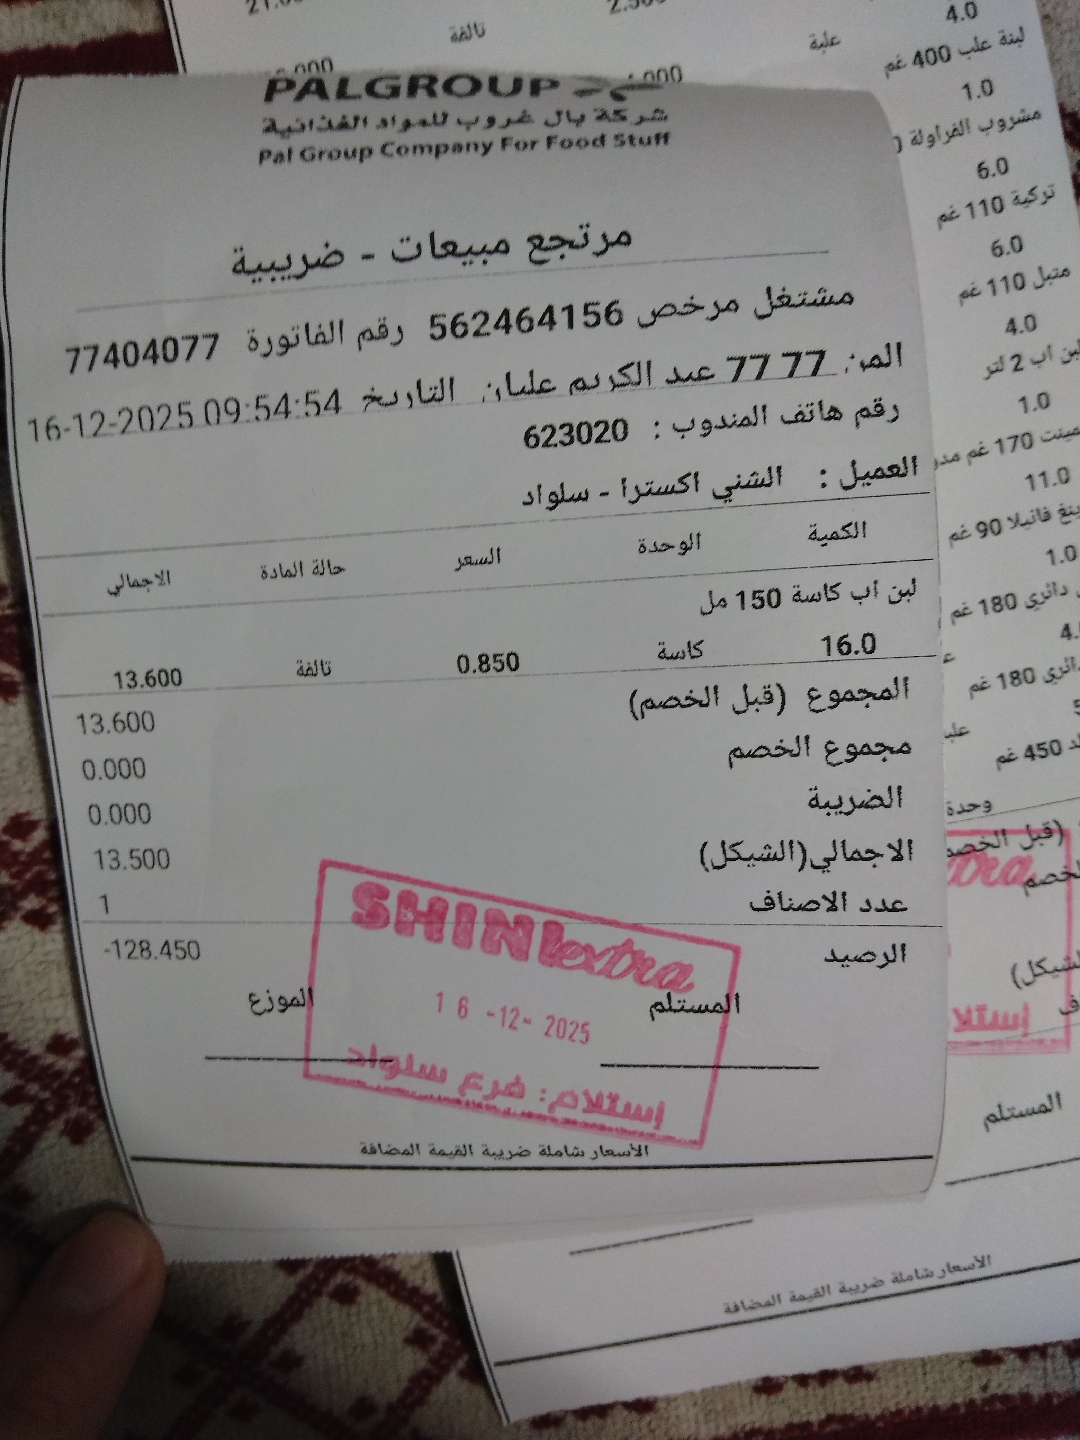 PALGROUP
شركة بال غروب للمواد الغذائية
Pal Group Company For Food Stuff
مرتجع مبيعات - ضريبية
مشتغل مرخص 562464156 رقم الفاتورة 77404077
77 77 عبد الكريم عليان التاريخ 16-12-2025 09:54:54
رقم هاتف المندوب : 623020
العميل : الشني اكسترا - سلواد
الكمية الوحدة السعر حالة المادة الاجمالي
لبن اب كاسة 150 مل
16.0 كاسة 0.850 تالفة 13.600
المجموع (قبل الخصم) 13.600
مجموع الخصم 0.000
الضريبة 0.000
الاجمالي(الشيكل) 13.500
عدد الاصناف 1
الرصيد -128.450
المستلم الموزع
SHINI extra
16 -12- 2025
إستلام: فرع سلواد
الأسعار شاملة ضريبة القيمة المضافة
4.0
علبة تالفة
لبنة علب 400 غم
1.0
مشروب الفراولة
6.0
تركية 110 غم
6.0
متبل 110 غم
4.0
لبن اب 2 لتر
1.0
170 غم
11.0
فانيلا 90 غم
1.0
دائري 180 غم
180 غم
450 غم
وحدة
(قبل الخصم
الخصم
extra
إستلا
المستلم
الأسعار شاملة ضريبة القيمة المضافة